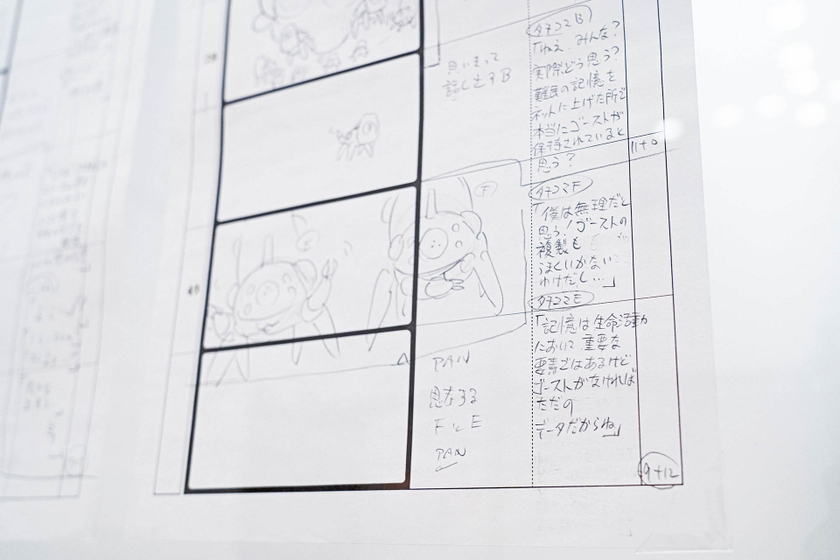 思いきって
話し出すB
タチコマB
「ねえ、みんな?
実際どう思う?
難民の記憶を
ネットに上げた所で
本当にゴーストが
保持されていると
思う?
11+0
F
タチコマF
「僕は無理だと
思う!ゴーストの
複製も
うまくいかない
わけだし…」
E
PAN
思存する
FとE
PAN
タチコマE
「記憶は生命活動
において重要な
要素ではあるけど
ゴーストがなければ
ただの
データだからね」
9+12